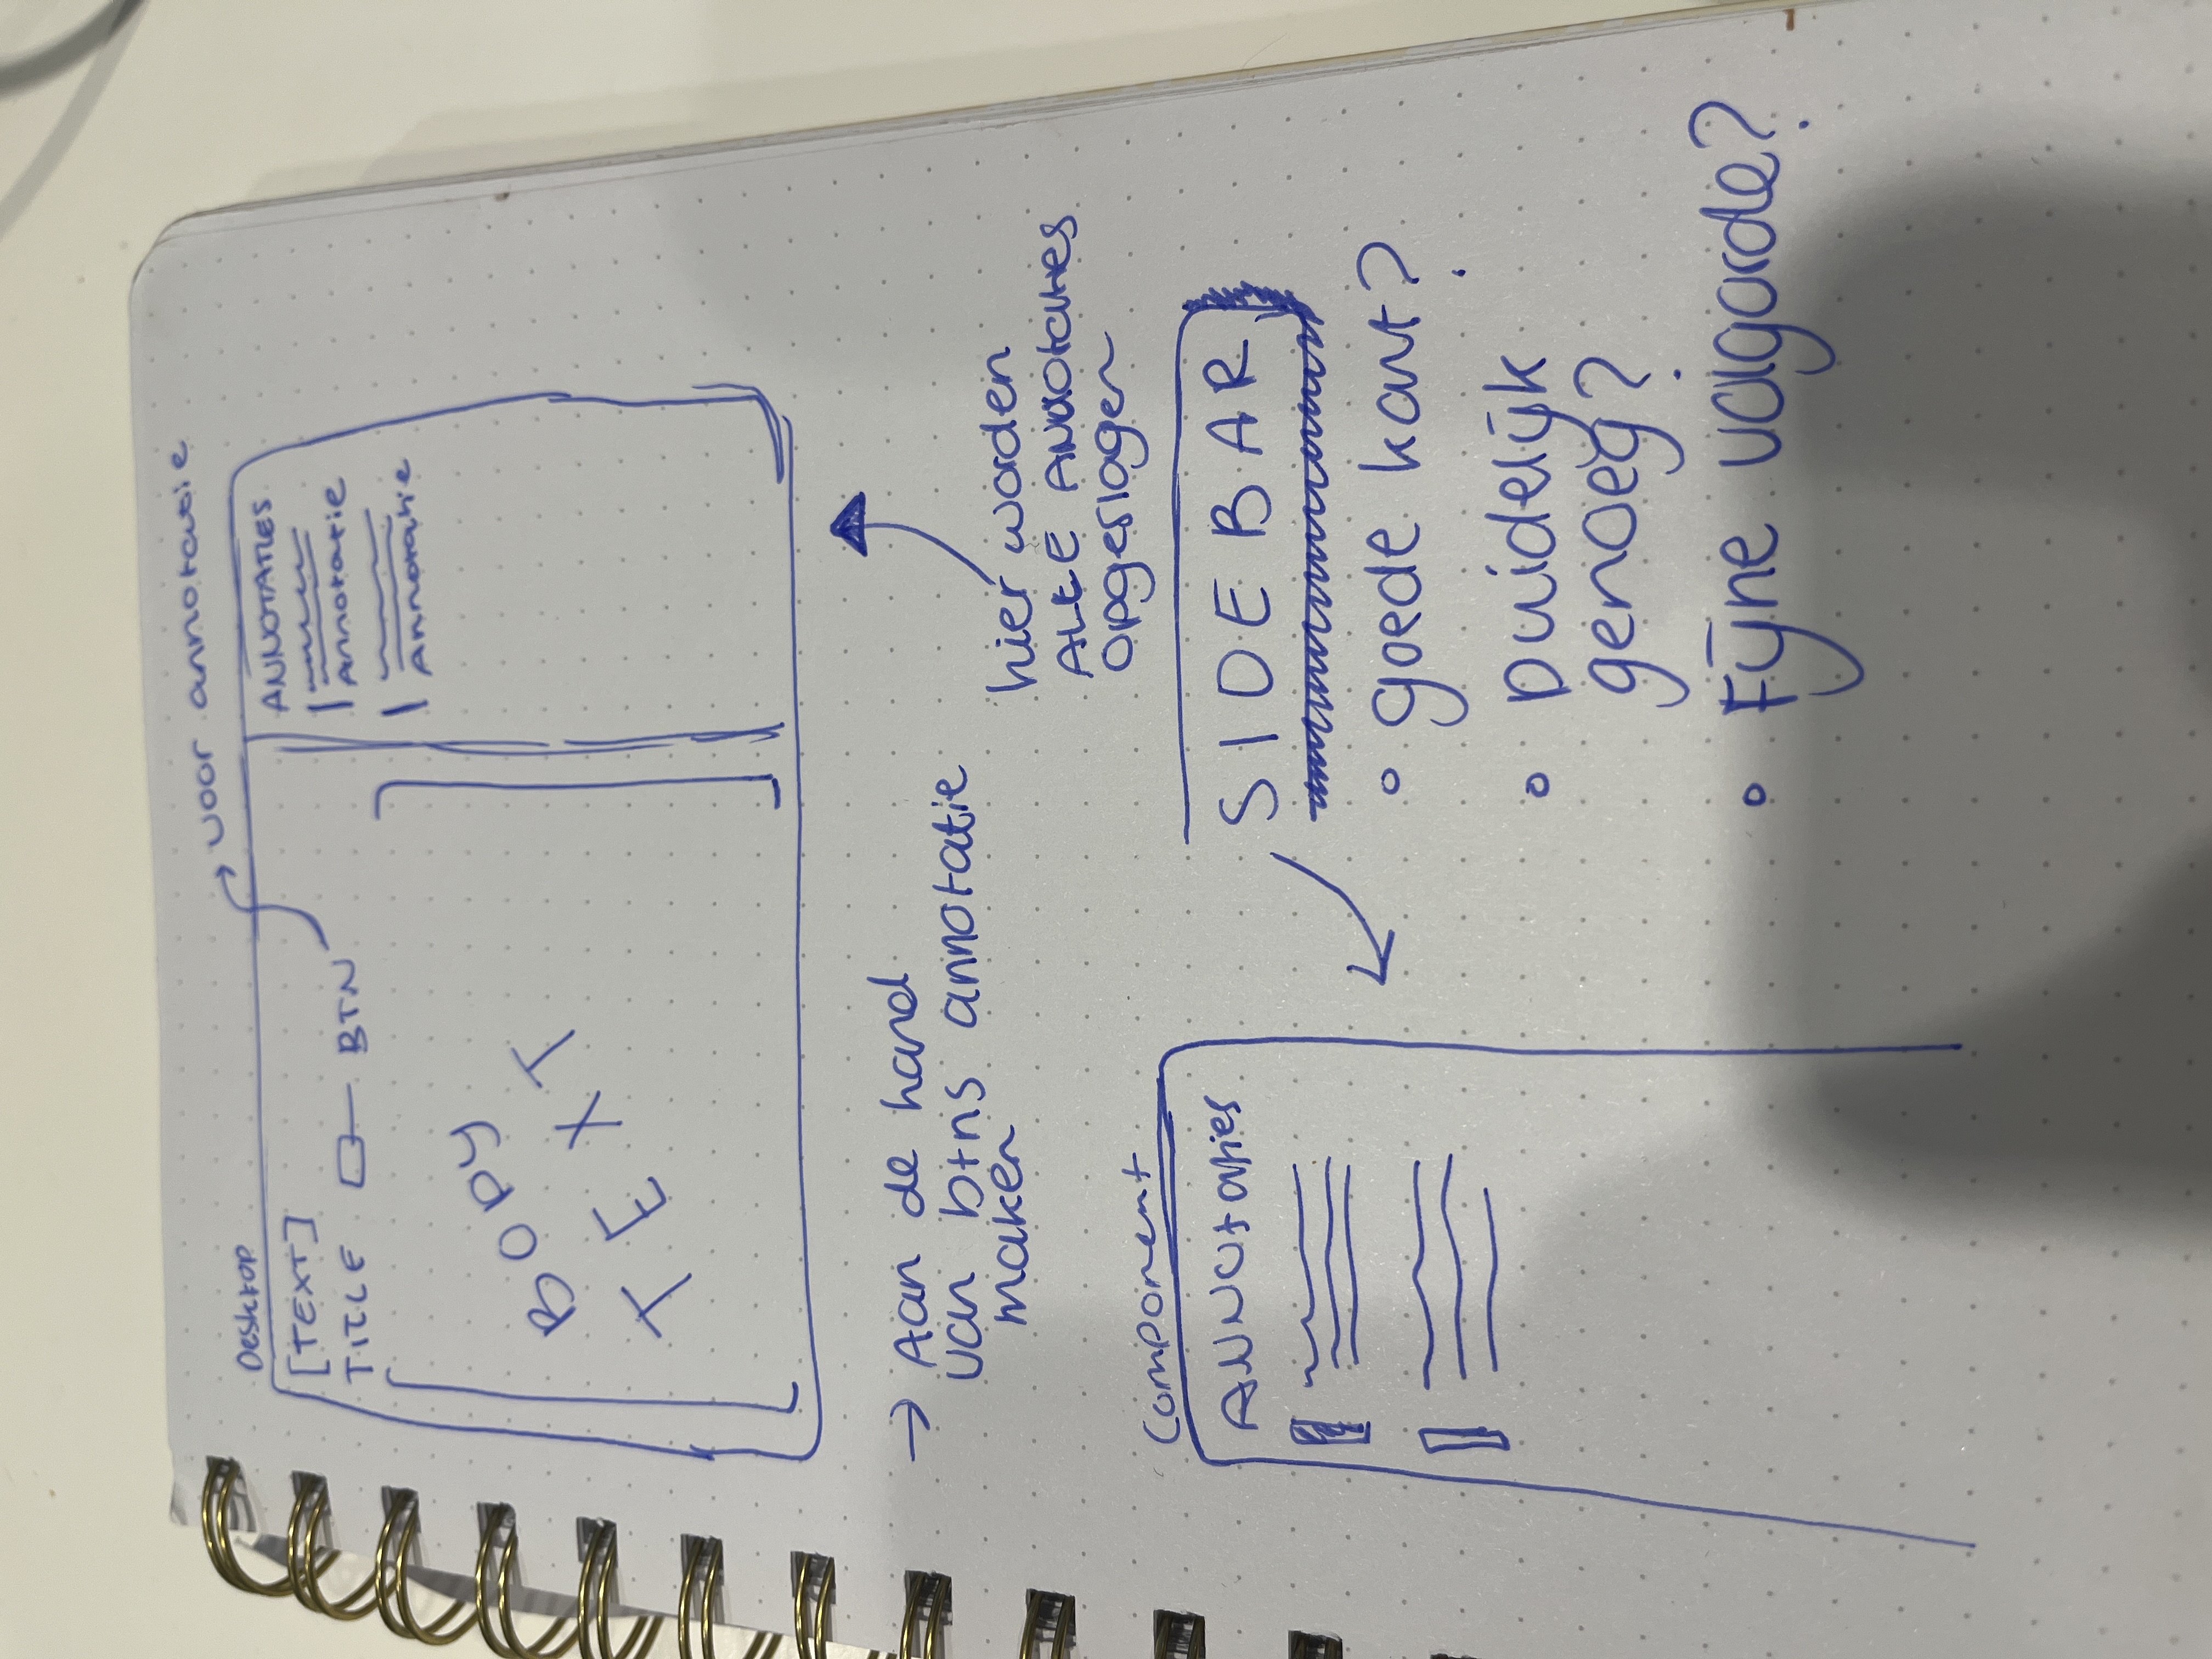 Desktop
→ voor annotatie
[TEXT]
TITLE BTN
ANNOTATIES
Annotatie
Annotatie
BODY
TEXT
→ Aan de hand
van btns annotatie
maken
hier worden
ALLE ANNOtaties
opgeslagen
Component
ANNOtaties
SIDEBAR
• goede kant?
• Duidelijk
genoeg?
• Fijne volgorde?